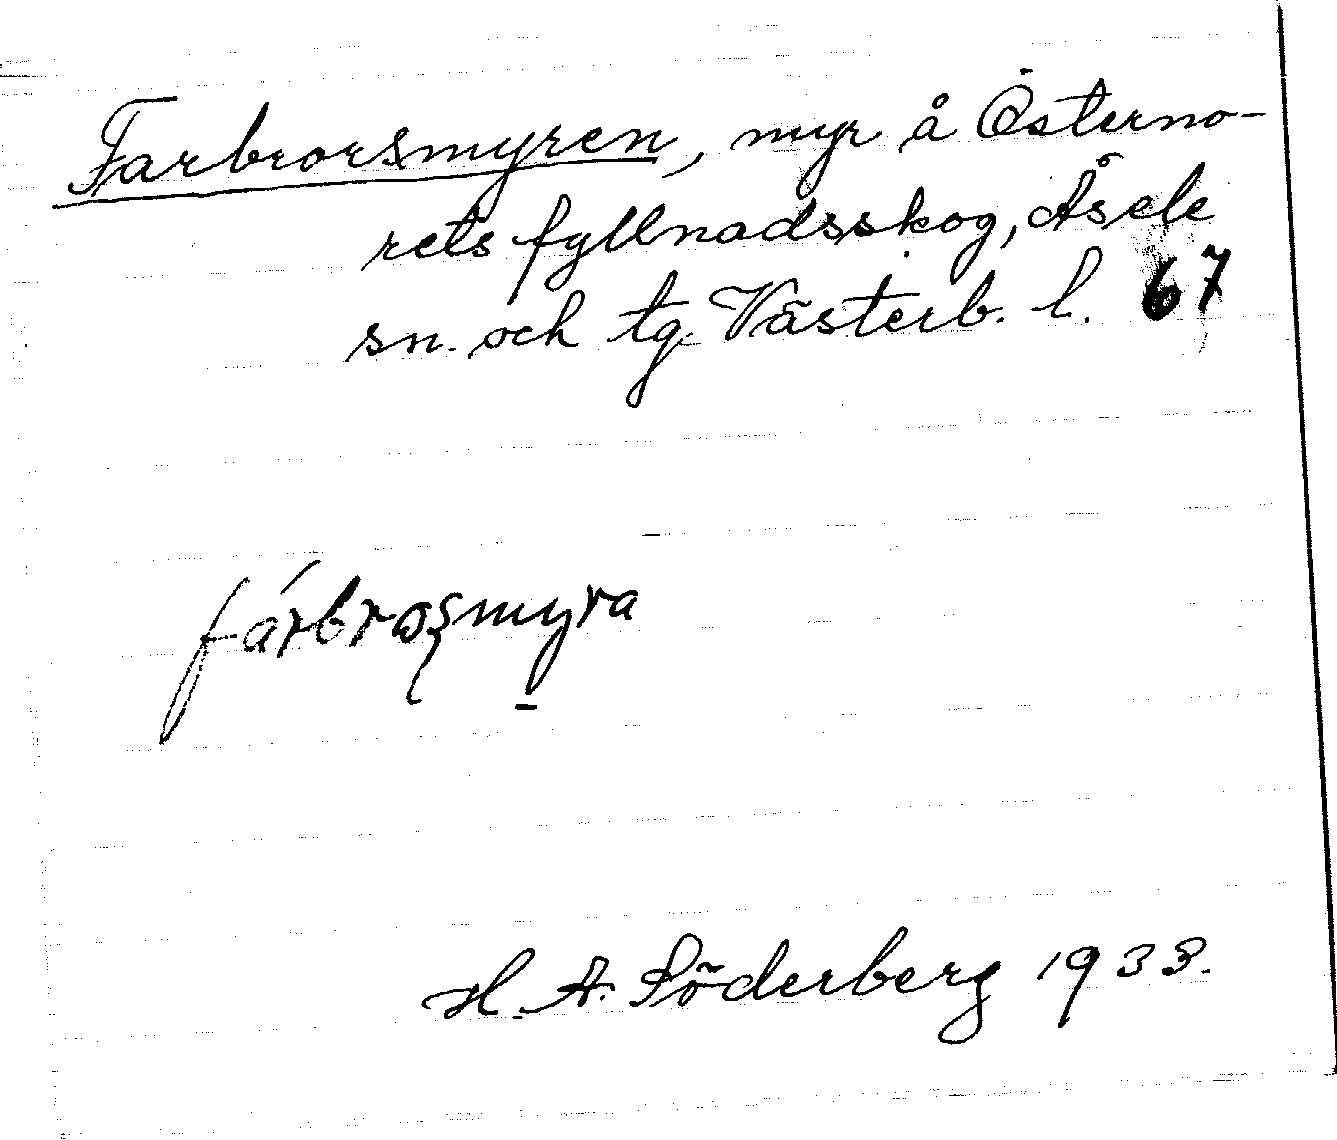 Farbrorsmyren, myr å Österno-
rets fyllnadsskog, Åsele
sn. och tg. Västerb. l. 67
fárbrosmyra
H. A. Söderberg 1933.